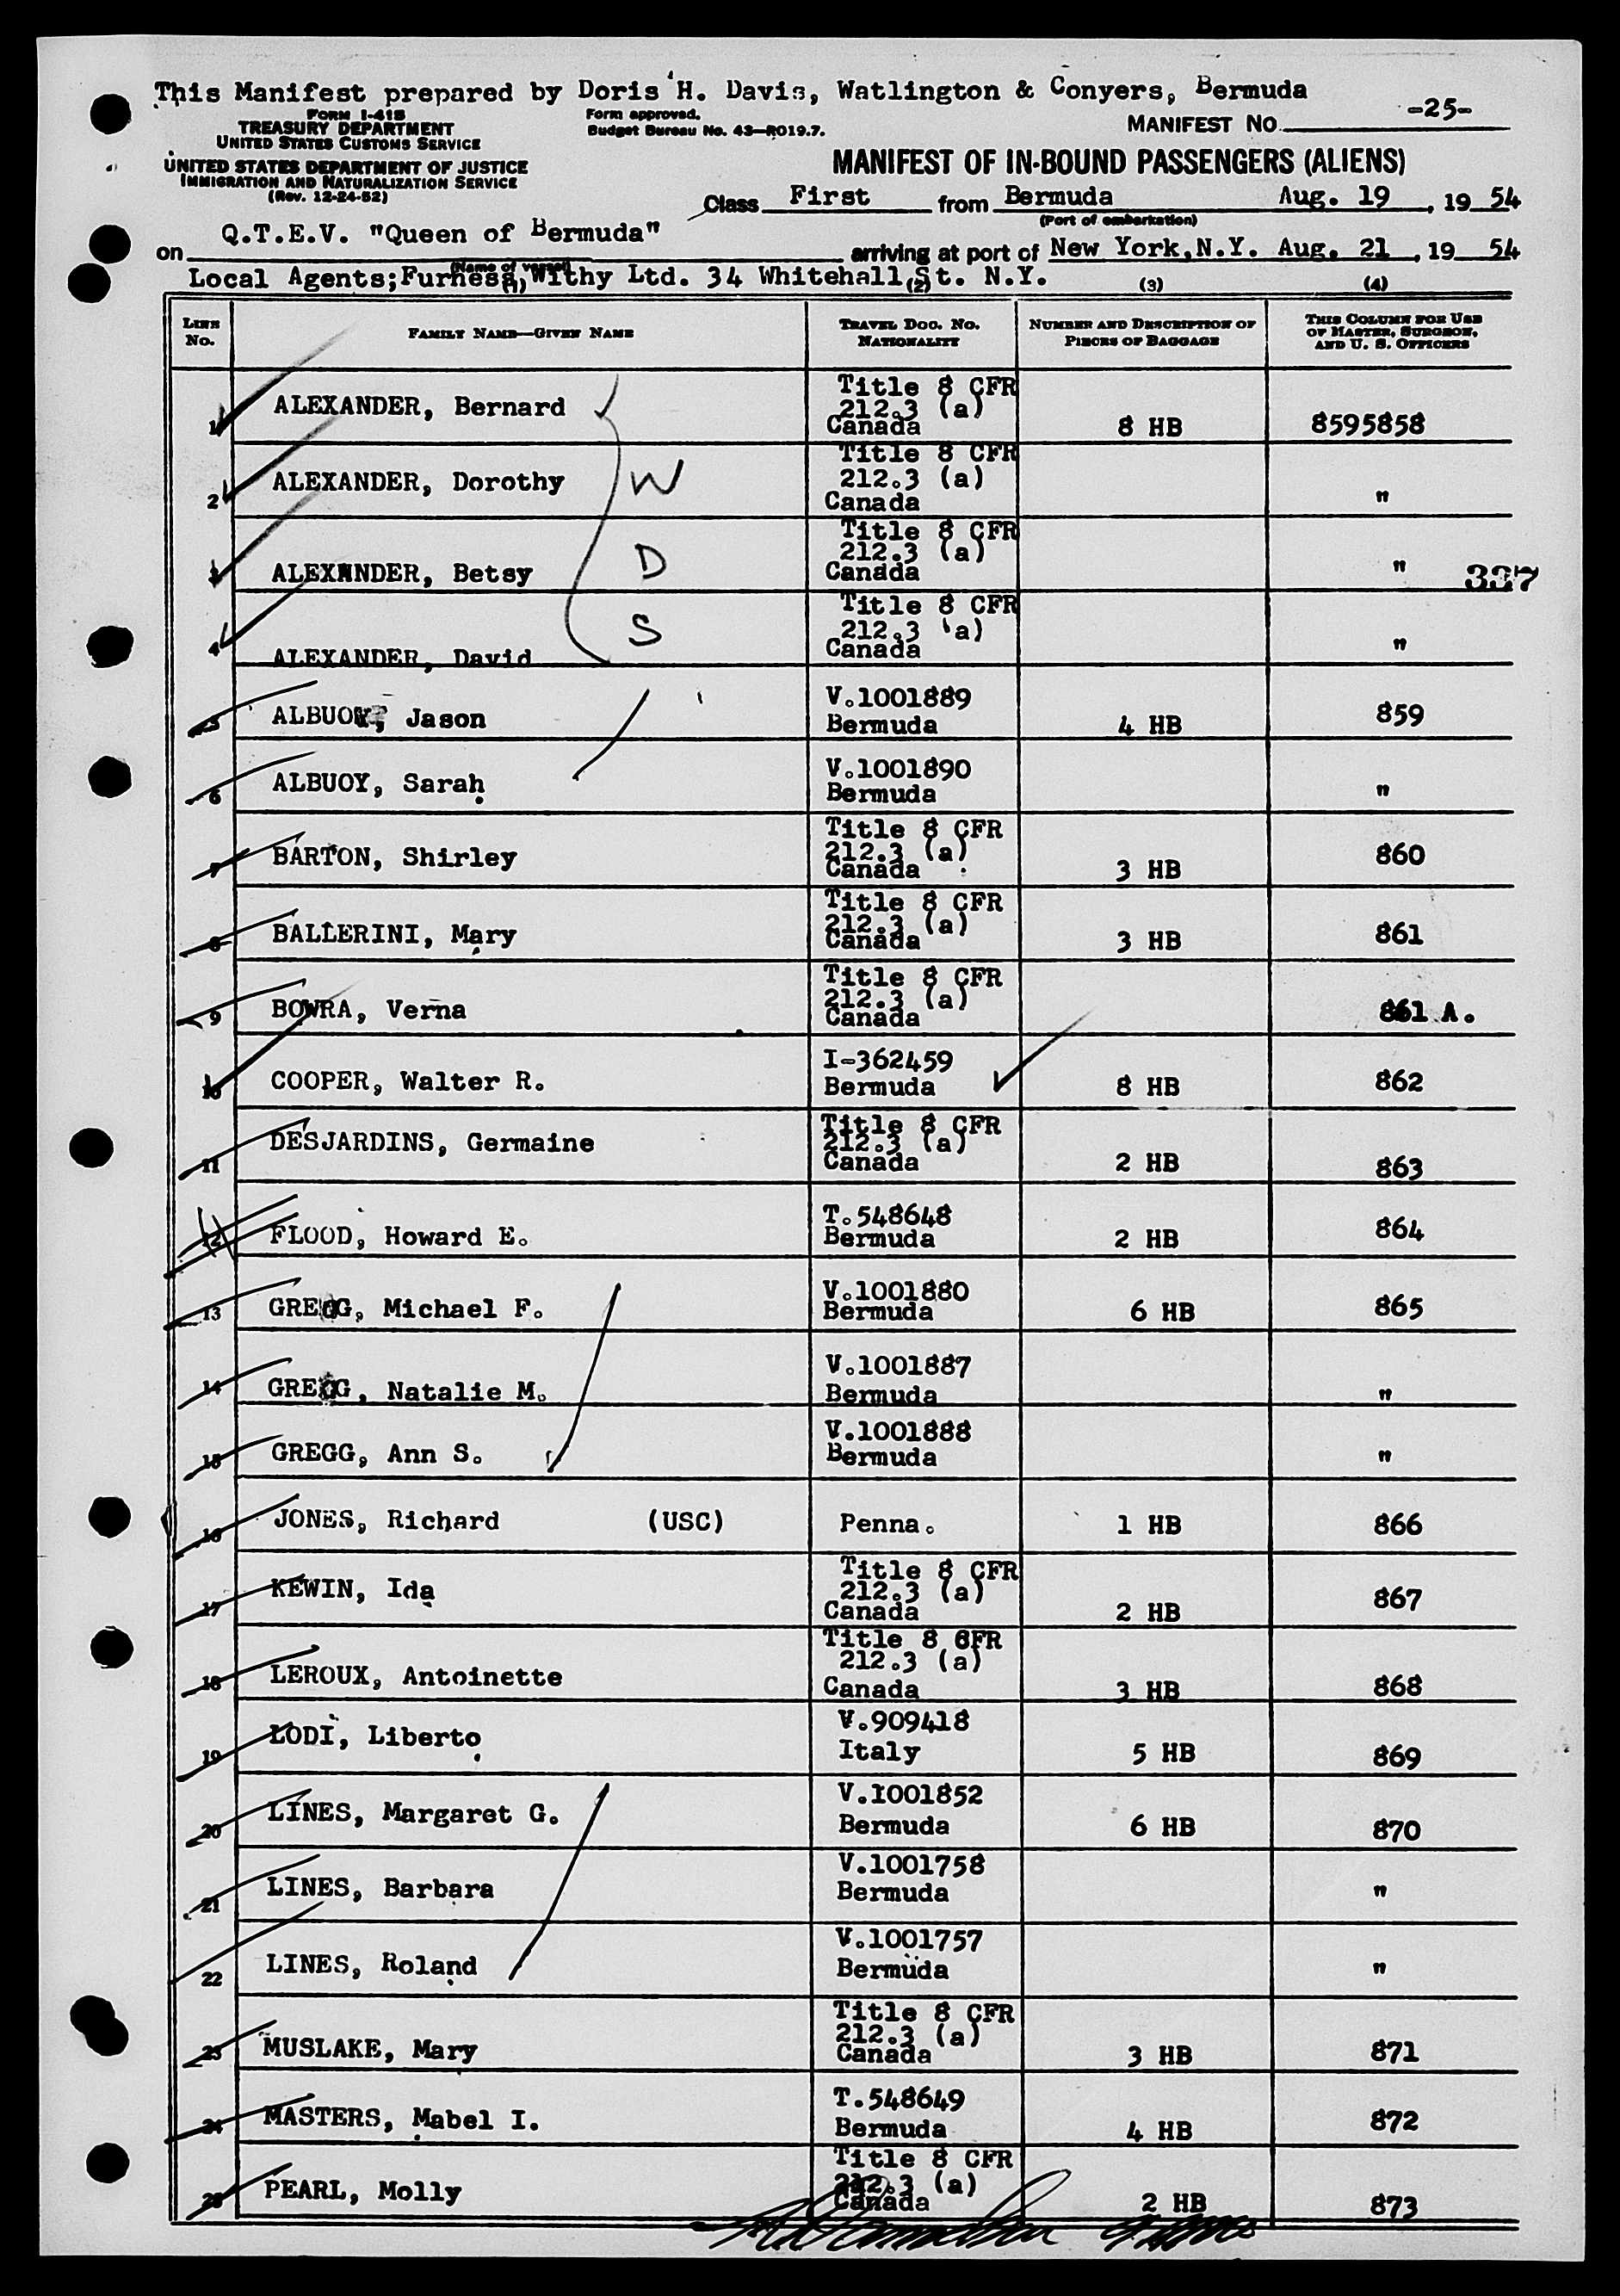 This Manifest prepared by Doris H. Davis, Watlington & Conyers, Bermuda
FORM I-418
TREASURY DEPARTMENT
UNITED STATES CUSTOMS SERVICE
Form approved.
Budget Bureau No. 43—R019.7.
MANIFEST NO. -25-
UNITED STATES DEPARTMENT OF JUSTICE
IMMIGRATION AND NATURALIZATION SERVICE
(Rev. 12-24-52)
MANIFEST OF IN-BOUND PASSENGERS (ALIENS)
Class First from Bermuda Aug. 19, 19 54
(Port of embarkation)
on Q.T.E.V. "Queen of Bermuda" arriving at port of New York, N.Y. Aug. 21, 19 54
(Name of vessel)
Local Agents; Furness, Withy Ltd. 34 Whitehall St. N.Y.
(1) (2) (3) (4)
LINE No. FAMILY NAME—GIVEN NAME TRAVEL DOC. NO. NATIONALITY NUMBER AND DESCRIPTION OF PIECES OF BAGGAGE THIS COLUMN FOR USE OF MASTER, SURGEON, AND U. S. OFFICERS
1 ALEXANDER, Bernard Title 8 CFR 212.3 (a) Canada 8 HB 8595858
2 ALEXANDER, Dorothy W Title 8 CFR 212.3 (a) Canada "
3 ALEXANDER, Betsy D Title 8 CFR 212.3 (a) Canada " 337
4 ALEXANDER, David S Title 8 CFR 212.3 (a) Canada "
5 ALBUOY, Jason V.1001889 Bermuda 4 HB 859
6 ALBUOY, Sarah V.1001890 Bermuda "
7 BARTON, Shirley Title 8 CFR 212.3 (a) Canada 3 HB 860
8 BALLERINI, Mary Title 8 CFR 212.3 (a) Canada 3 HB 861
9 BOWRA, Verna Title 8 CFR 212.3 (a) Canada 861 A.
10 COOPER, Walter R. I-362459 Bermuda 8 HB 862
11 DESJARDINS, Germaine Title 8 CFR 212.3 (a) Canada 2 HB 863
12 FLOOD, Howard E. T.548648 Bermuda 2 HB 864
13 GREGG, Michael F. V.1001880 Bermuda 6 HB 865
14 GREGG, Natalie M. V.1001887 Bermuda "
15 GREGG, Ann S. V.1001888 Bermuda "
16 JONES, Richard (USC) Penna. 1 HB 866
17 KEWIN, Ida Title 8 CFR 212.3 (a) Canada 2 HB 867
18 LEROUX, Antoinette Title 8 CFR 212.3 (a) Canada 3 HB 868
19 LODI, Liberto V.909418 Italy 5 HB 869
20 LINES, Margaret G. V.1001852 Bermuda 6 HB 870
21 LINES, Barbara V.1001758 Bermuda "
22 LINES, Roland V.1001757 Bermuda "
23 MUSLAKE, Mary Title 8 CFR 212.3 (a) Canada 3 HB 871
24 MASTERS, Mabel I. T.548649 Bermuda 4 HB 872
25 PEARL, Molly Title 8 CFR 212.3 (a) Canada 2 HB 873